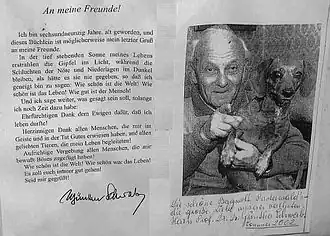 An meine Freunde!
Ich bin sechsundneunzig Jahre alt geworden, und
dieses Büchlein ist möglicherweise mein letzter Gruß
an meine Freunde.
In der tief stehenden Sonne meines Lebens
erstrahlen die Gipfel im Licht, während die
Schluchten der Nöte und Niederlagen im Dunkel
bleiben, als hätte es sie nie gegeben, so daß ich
geneigt bin zu sagen: Wie schön ist die Welt! Wie
schön ist das Leben! Wie gut ist der Mensch!
Und ich sage weiter, was gesagt sein soll, solange
ich noch Zeit dazu habe:
Ehrfürchtigen Dank dem Ewigen dafür, daß ich
leben durfte!
Herzinnigen Dank allen Menschen, die mir im
Geiste und in der Tat Gutes erwiesen haben, und allen
geliebten Tieren, die mein Leben begleiteten!
Aufrichtige Vergebung allen Menschen, die mir
bewußt Böses zugefügt haben!
Wie schön ist die Welt! Wie schön war das Leben!
Es soll euch immer gut gehen!
Seid mir gegrüßt!
Die schöne
die große Liebe unseres
Herrn Prof. Dr. Dr. Günther Schwab
2002